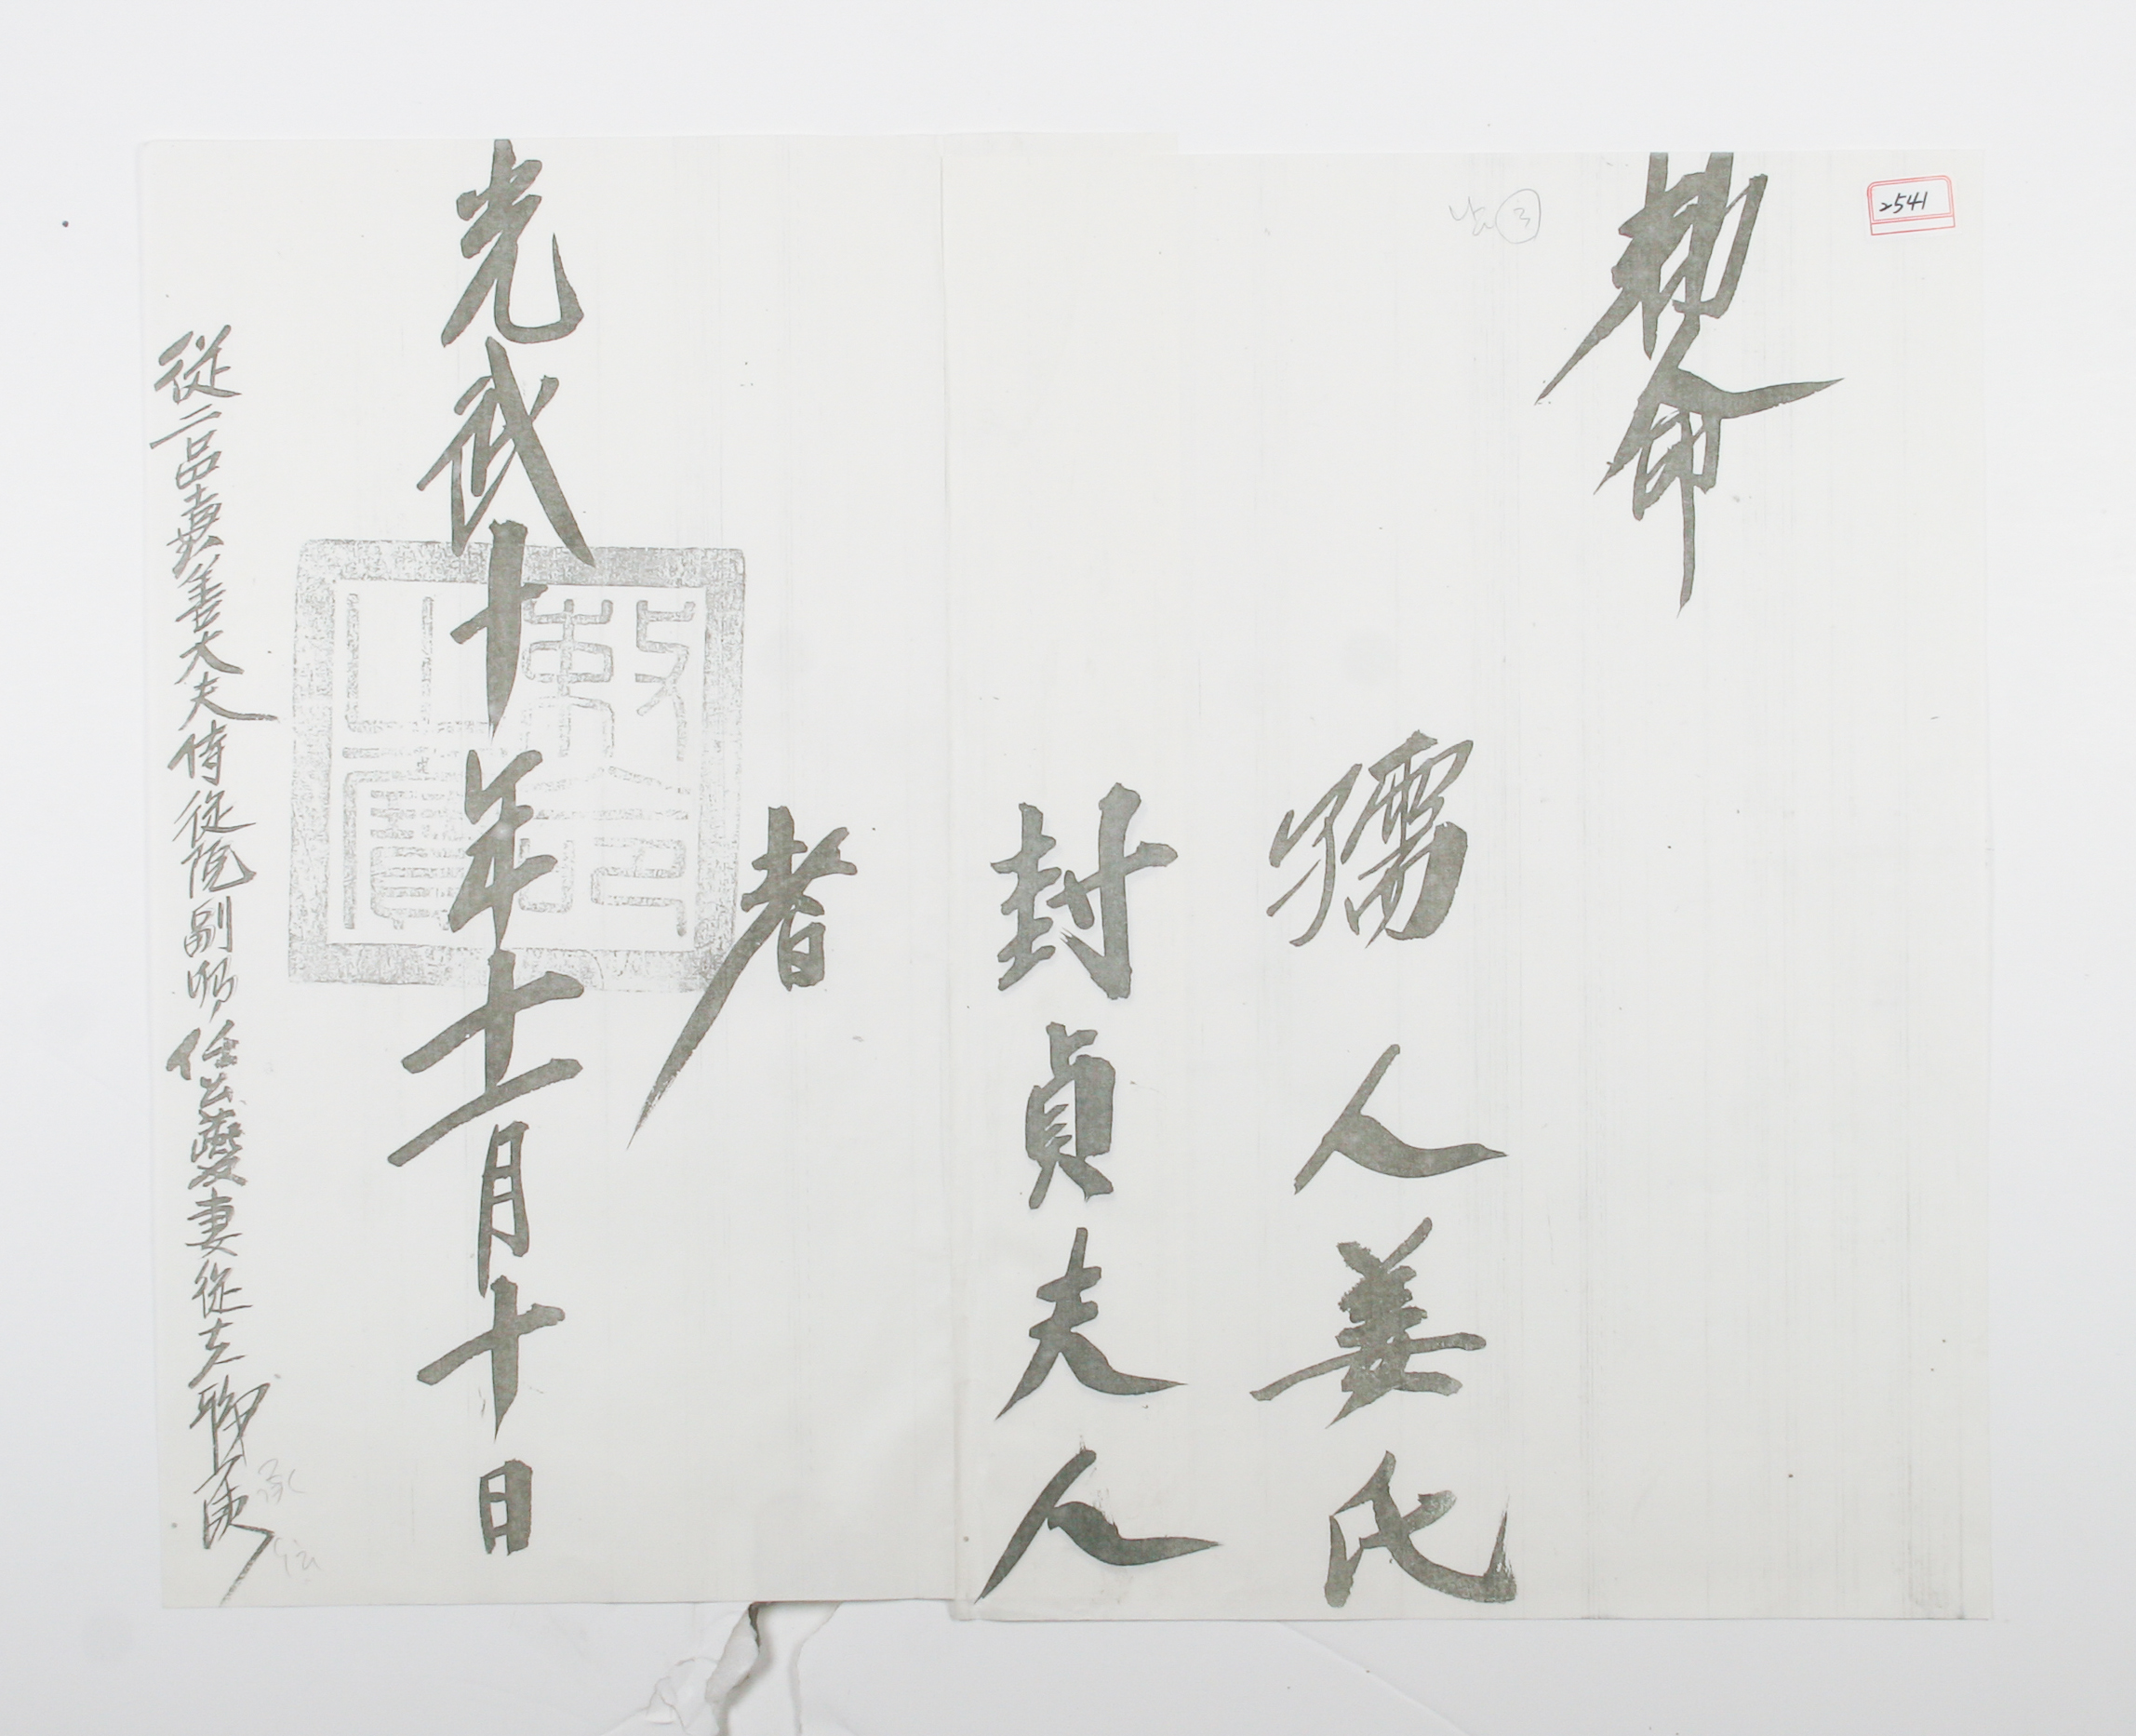 2541
勅命
孺人姜氏
封貞夫人
者
光武十年十一月十日
勅命之寶
從二品嘉善大夫侍從院副卿任公妻從夫職